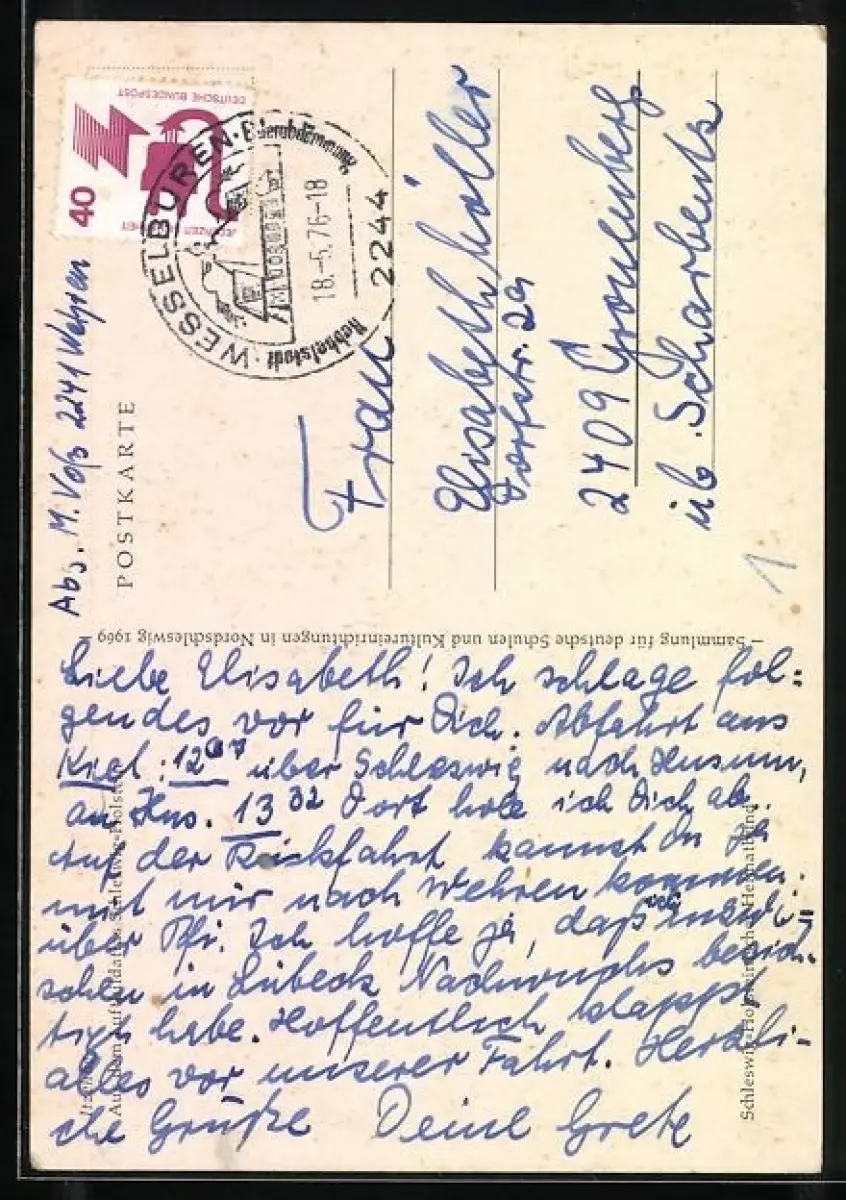 DEUTSCHE BUNDESPOST
40
WESSELBUREN
Hebbelstadt
18.-5.76-18
2244
Abs. M. Voß 2241 Wehren
POSTKARTE
Frau
Elisabeth
Dorfstr. 29
2409 Gronenberg
üb. Scharbeutz
1
– Sammlung für deutsche Schulen und Kultureinrichtungen in Nordschleswig 1969 –
Liebe Elisabeth! Ich schlage fol=
gendes vor für Dich. Abfahrt aus
Kiel: 12 über Schleswig nach Husum,
an Hus. 13 32 Dort hole ich Dich ab.
Auf der Rückfahrt kannst Du ja
mit mir nach Wehren kommen.
über Pfi. Ich hoffe ja, daß ich inzwi=
schen in Lübeck Nachwuchs besich-
tigt habe. Hoffentlich klappt
alles vor unserer Fahrt. Herzli-
che Grüße Deine Grete
Schleswig-Holsteinischer Heimatbund